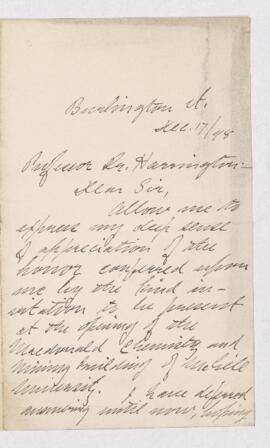 Burlington Vt.
Dec. 17/98
Professor Dr. Harrington:-
Dear Sir,
Allow me to
express my deep sense
of appreciation of the
honor conferred upon
me by the kind in-
vitation to be present
at the opening of the
Macdonald Chemistry and
Mining building of McGill
University. I have deferred
answering until now, hoping